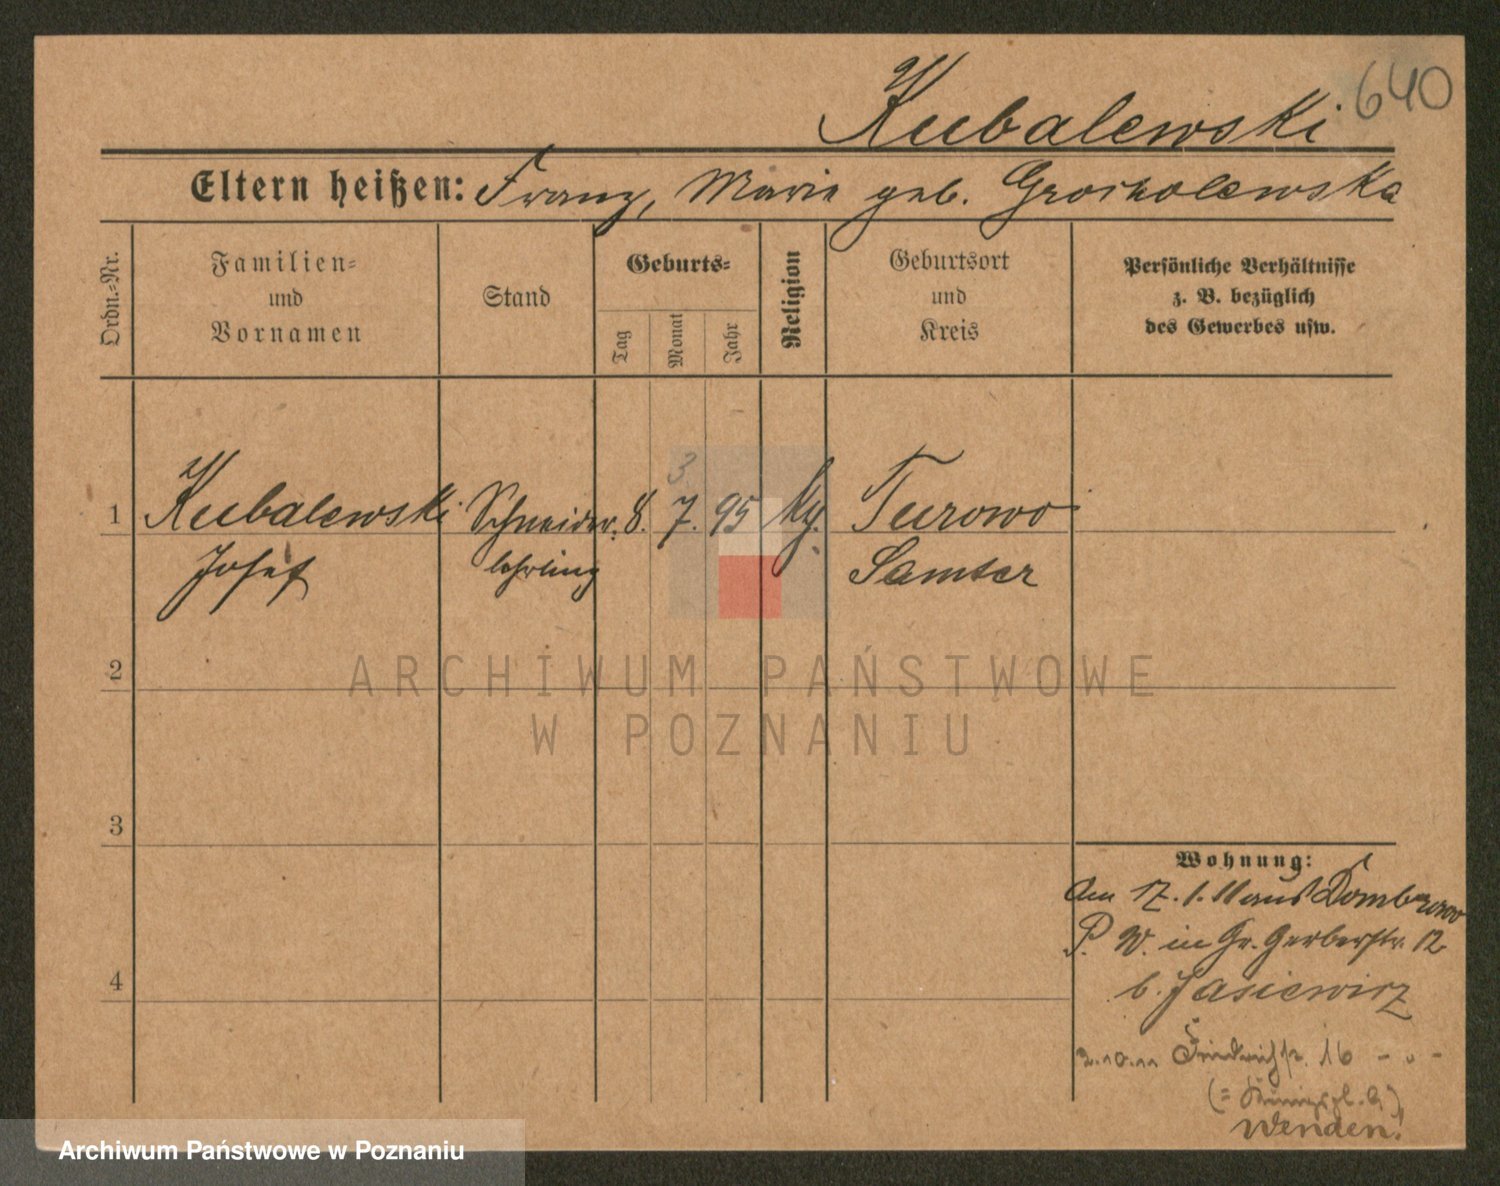 Kubalewski 640
Eltern heißen: Franz, Marie geb. Groscholewska
Ordn.=Nr.
Familien=
und
Vornamen
Stand
Geburts=
Tag
Monat
Jahr
Religion
Geburtsort
und
Kreis
Persönliche Verhältnisse
z. B. bezüglich
des Gewerbes usw.
3.
1 Kubalewski Schneider 8. 7. 95 Turowo
Josef lehrling Samter
2
ARCHIWUM PAŃSTWOWE
W POZNANIU
3
Wohnung:
Am 17. 1. 11 aus Dombrowo
P. W. in Gr. Gerberstr. 12
4
b. Jasiewicz
2.10.11 Friedrichstr. 16 - " -
Wenden!
Archiwum Państwowe w Poznaniu